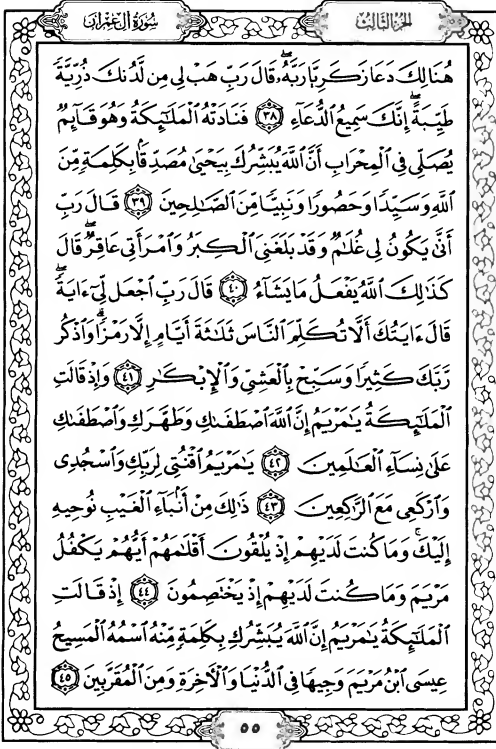 سُورَةُ آلِ عِمْرَانَ
الجُزْءُ الثَّالِثُ
هُنَالِكَ دَعَا زَكَرِيَّا رَبَّهُۥۖ قَالَ رَبِّ هَبْ لِى مِن لَّدُنكَ ذُرِّيَّةً
طَيِّبَةًۖ إِنَّكَ سَمِيعُ الدُّعَآءِ ٣٨ فَنَادَتْهُ الْمَلَٰٓئِكَةُ وَهُوَ قَآئِمٌ
يُصَلِّى فِى الْمِحْرَابِ أَنَّ اللَّهَ يُبَشِّرُكَ بِيَحْيَىٰ مُصَدِّقًۢا بِكَلِمَةٍ مِّنَ
اللَّهِ وَسَيِّدًا وَحَصُورًا وَنَبِيًّا مِّنَ الصَّٰلِحِينَ ٣٩ قَالَ رَبِّ
أَنَّىٰ يَكُونُ لِى غُلَٰمٌ وَقَدْ بَلَغَنِىَ الْكِبَرُ وَامْرَأَتِى عَاقِرٌۖ قَالَ
كَذَٰلِكَ اللَّهُ يَفْعَلُ مَا يَشَآءُ ٤٠ قَالَ رَبِّ اجْعَل لِّىٓ ءَايَةًۖ
قَالَ ءَايَتُكَ أَلَّا تُكَلِّمَ النَّاسَ ثَلَٰثَةَ أَيَّامٍ إِلَّا رَمْزًاۗ وَاذْكُر
رَّبَّكَ كَثِيرًا وَسَبِّحْ بِالْعَشِىِّ وَالْإِبْكَٰرِ ٤١ وَإِذْ قَالَتِ
الْمَلَٰٓئِكَةُ يَٰمَرْيَمُ إِنَّ اللَّهَ اصْطَفَىٰكِ وَطَهَّرَكِ وَاصْطَفَىٰكِ
عَلَىٰ نِسَآءِ الْعَٰلَمِينَ ٤٢ يَٰمَرْيَمُ اقْنُتِى لِرَبِّكِ وَاسْجُدِى
وَارْكَعِى مَعَ الرَّٰكِعِينَ ٤٣ ذَٰلِكَ مِنْ أَنۢبَآءِ الْغَيْبِ نُوحِيهِ
إِلَيْكَۚ وَمَا كُنتَ لَدَيْهِمْ إِذْ يُلْقُونَ أَقْلَٰمَهُمْ أَيُّهُمْ يَكْفُلُ
مَرْيَمَ وَمَا كُنتَ لَدَيْهِمْ إِذْ يَخْتَصِمُونَ ٤٤ إِذْ قَالَتِ
الْمَلَٰٓئِكَةُ يَٰمَرْيَمُ إِنَّ اللَّهَ يُبَشِّرُكِ بِكَلِمَةٍ مِّنْهُ اسْمُهُ الْمَسِيحُ
عِيسَى ابْنُ مَرْيَمَ وَجِيهًا فِى الدُّنْيَا وَالْءَاخِرَةِ وَمِنَ الْمُقَرَّبِينَ ٤٥
٥٥